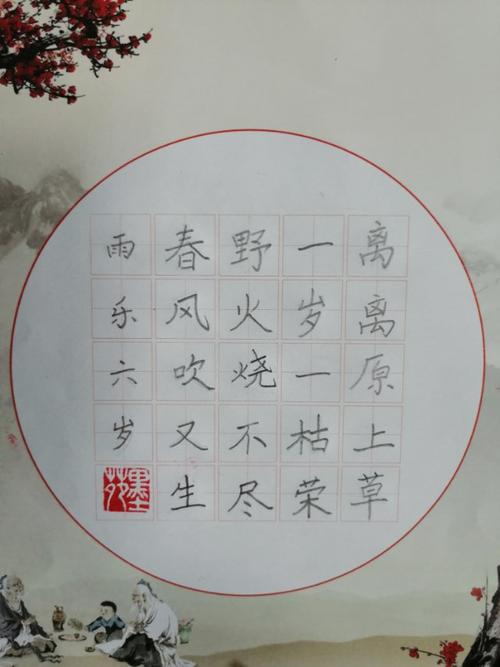 离离原上草
一岁一枯荣
野火烧不尽
春风吹又生
雨乐六岁
墨苑